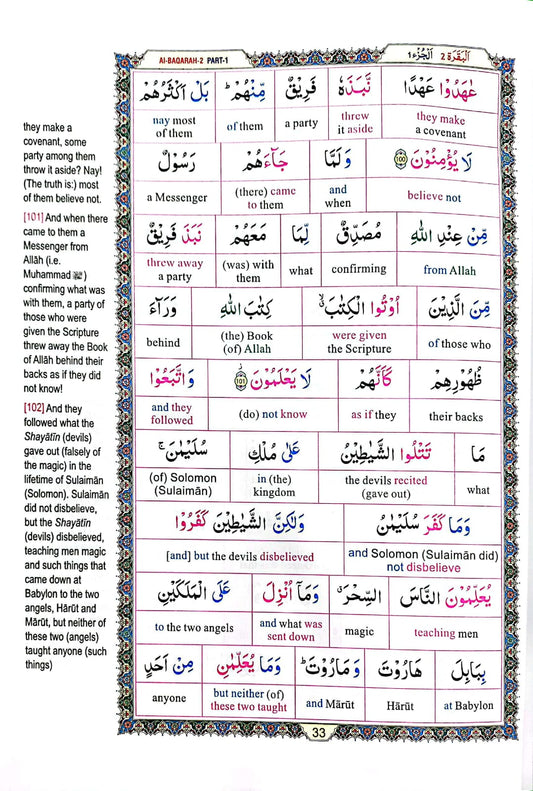 Al-BAQARAH-2 PART-1
اَلْجُزْء 1 اَلْبَقَرَة 2
عٰهَدُوْا عَهْدًا نَّبَذَهٗ فَرِيْقٌ مِّنْهُمْ ؕ بَلْ اَكْثَرُهُمْ
they make a covenant threw it aside a party of them nay most of them
لَا يُؤْمِنُوْنَ 100 وَ لَمَّا جَآءَهُمْ رَسُوْلٌ
believe not and when (there) came to them a Messenger
مِّنْ عِنْدِ اللّٰهِ مُصَدِّقٌ لِّمَا مَعَهُمْ نَبَذَ فَرِيْقٌ
from Allah confirming what (was) with them threw away a party
مِّنَ الَّذِيْنَ اُوْتُوا الْكِتٰبَ ۙ كِتٰبَ اللّٰهِ وَرَآءَ
of those who were given the Scripture (the) Book (of) Allah behind
ظُهُوْرِهِمْ كَاَنَّهُمْ لَا يَعْلَمُوْنَ 101 وَاتَّبَعُوْا
their backs as if they (do) not know and they followed
مَا تَتْلُوا الشَّيٰطِيْنُ عَلٰى مُلْكِ سُلَيْمٰنَ ۚ
what the devils recited (gave out) in (the) kingdom (of) Solomon (Sulaimān)
وَمَا كَفَرَ سُلَيْمٰنُ وَلٰكِنَّ الشَّيٰطِيْنَ كَفَرُوْا
and Solomon (Sulaimān did) not disbelieve [and] but the devils disbelieved
يُعَلِّمُوْنَ النَّاسَ السِّحْرَ ۗ وَمَآ اُنْزِلَ عَلَى الْمَلَكَيْنِ
teaching men magic and what was sent down to the two angels
بِبَابِلَ هَارُوْتَ وَمَارُوْتَ ؕ وَمَا يُعَلِّمٰنِ مِنْ اَحَدٍ
at Babylon Hārūt and Mārūt but neither (of) these two taught anyone
33
they make a
covenant, some
party among them
throw it aside? Nay!
(The truth is:) most
of them believe not.
[101] And when there
came to them a
Messenger from
Allāh (i.e.
Muhammad ﷺ)
confirming what was
with them, a party of
those who were
given the Scripture
threw away the Book
of Allāh behind their
backs as if they did
not know!
[102] And they
followed what the
Shayātīn (devils)
gave out (falsely of
the magic) in the
lifetime of Sulaimān
(Solomon). Sulaimān
did not disbelieve,
but the Shayātīn
(devils) disbelieved,
teaching men magic
and such things that
came down at
Babylon to the two
angels, Hārūt and
Mārūt, but neither of
these two (angels)
taught anyone (such
things)